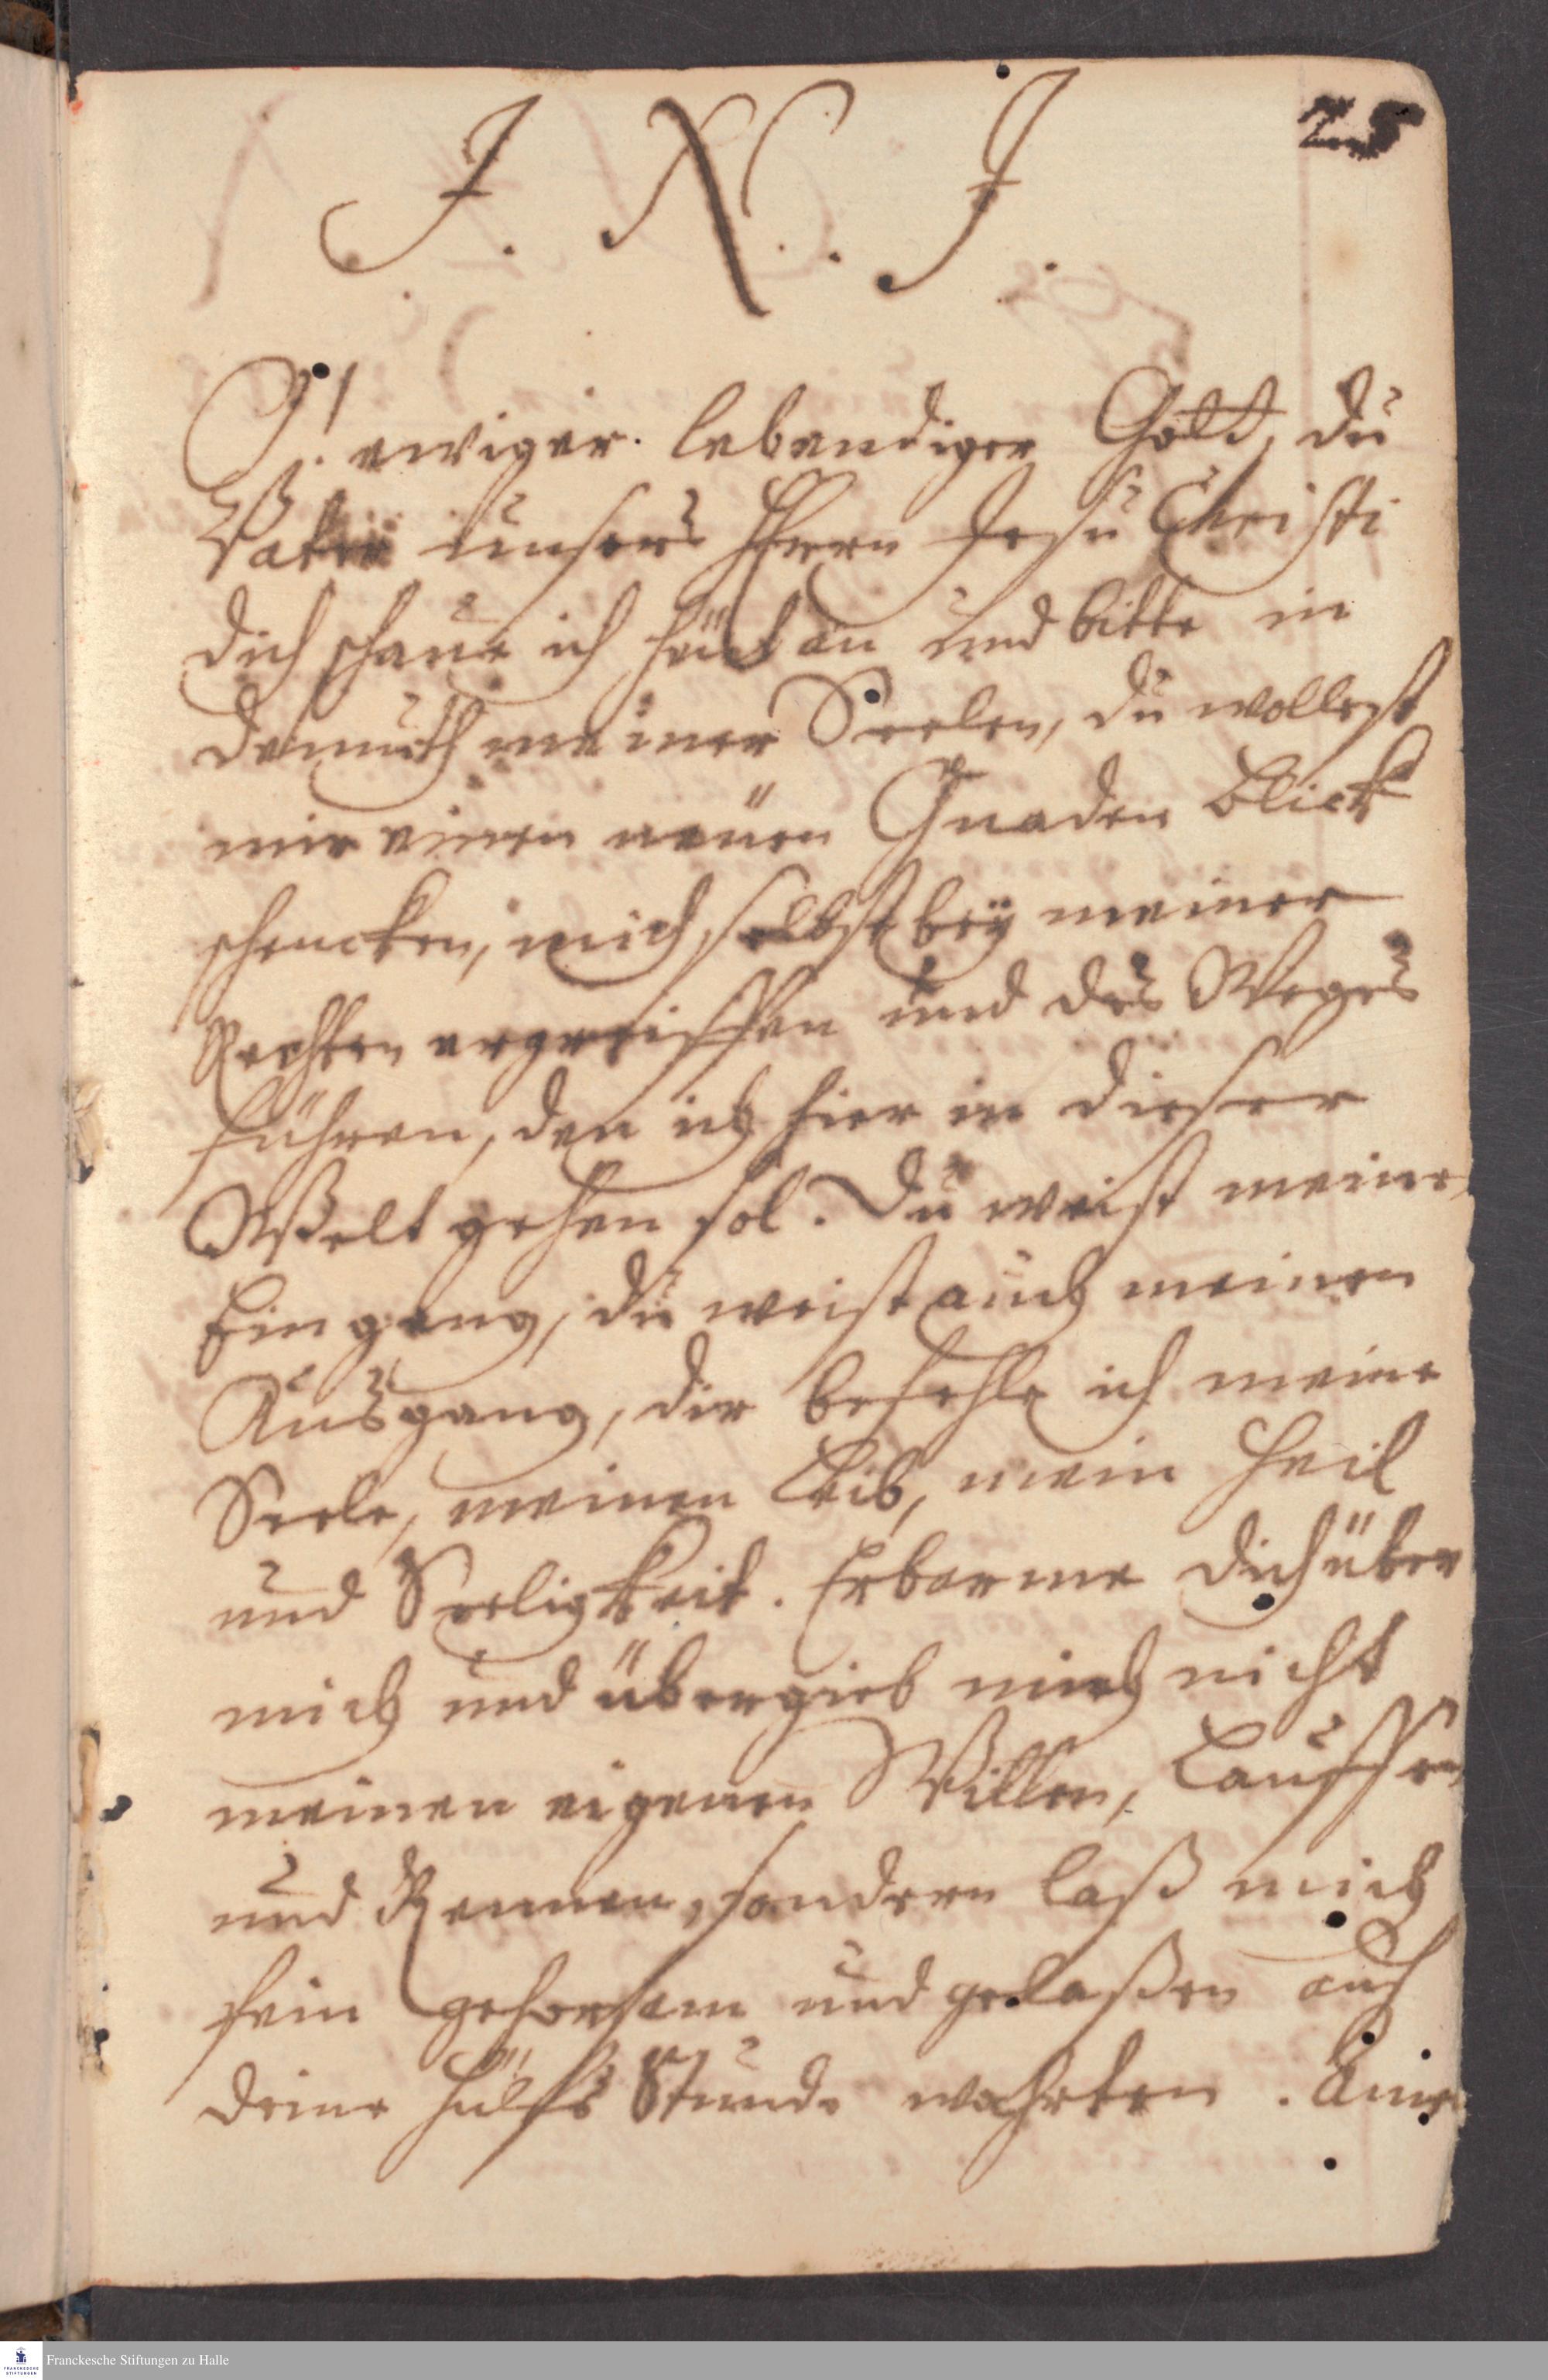 25
J. N. J.
O! ewiger lebendiger Gott, du
Vater unsers Herrn Jesu Christi
dich schaue ich heüt an und bitte in
demuth meiner Seelen, du wollest
mir einen neüen Gnaden blick
schencken, mich selbst beÿ meiner
Rechten ergreiffen und des Weges
führen, den ich hier in dieser
Welt gehen sol. Du weist meinen
Eingang, du weist auch meinen
Außgang, dir befehle ich meine
Seele, meinen Leib, mein Heil
und Seeligkeit. Erbarme dich über
mich und übergieb mich nicht
meinen eigenen Willen, Lauffen
und Rennen, sondern laß mich
fein gehorsam und gelaßen auf
deine Hülfs Stunde wahrten. Amen
Franckesche Stiftungen zu Halle